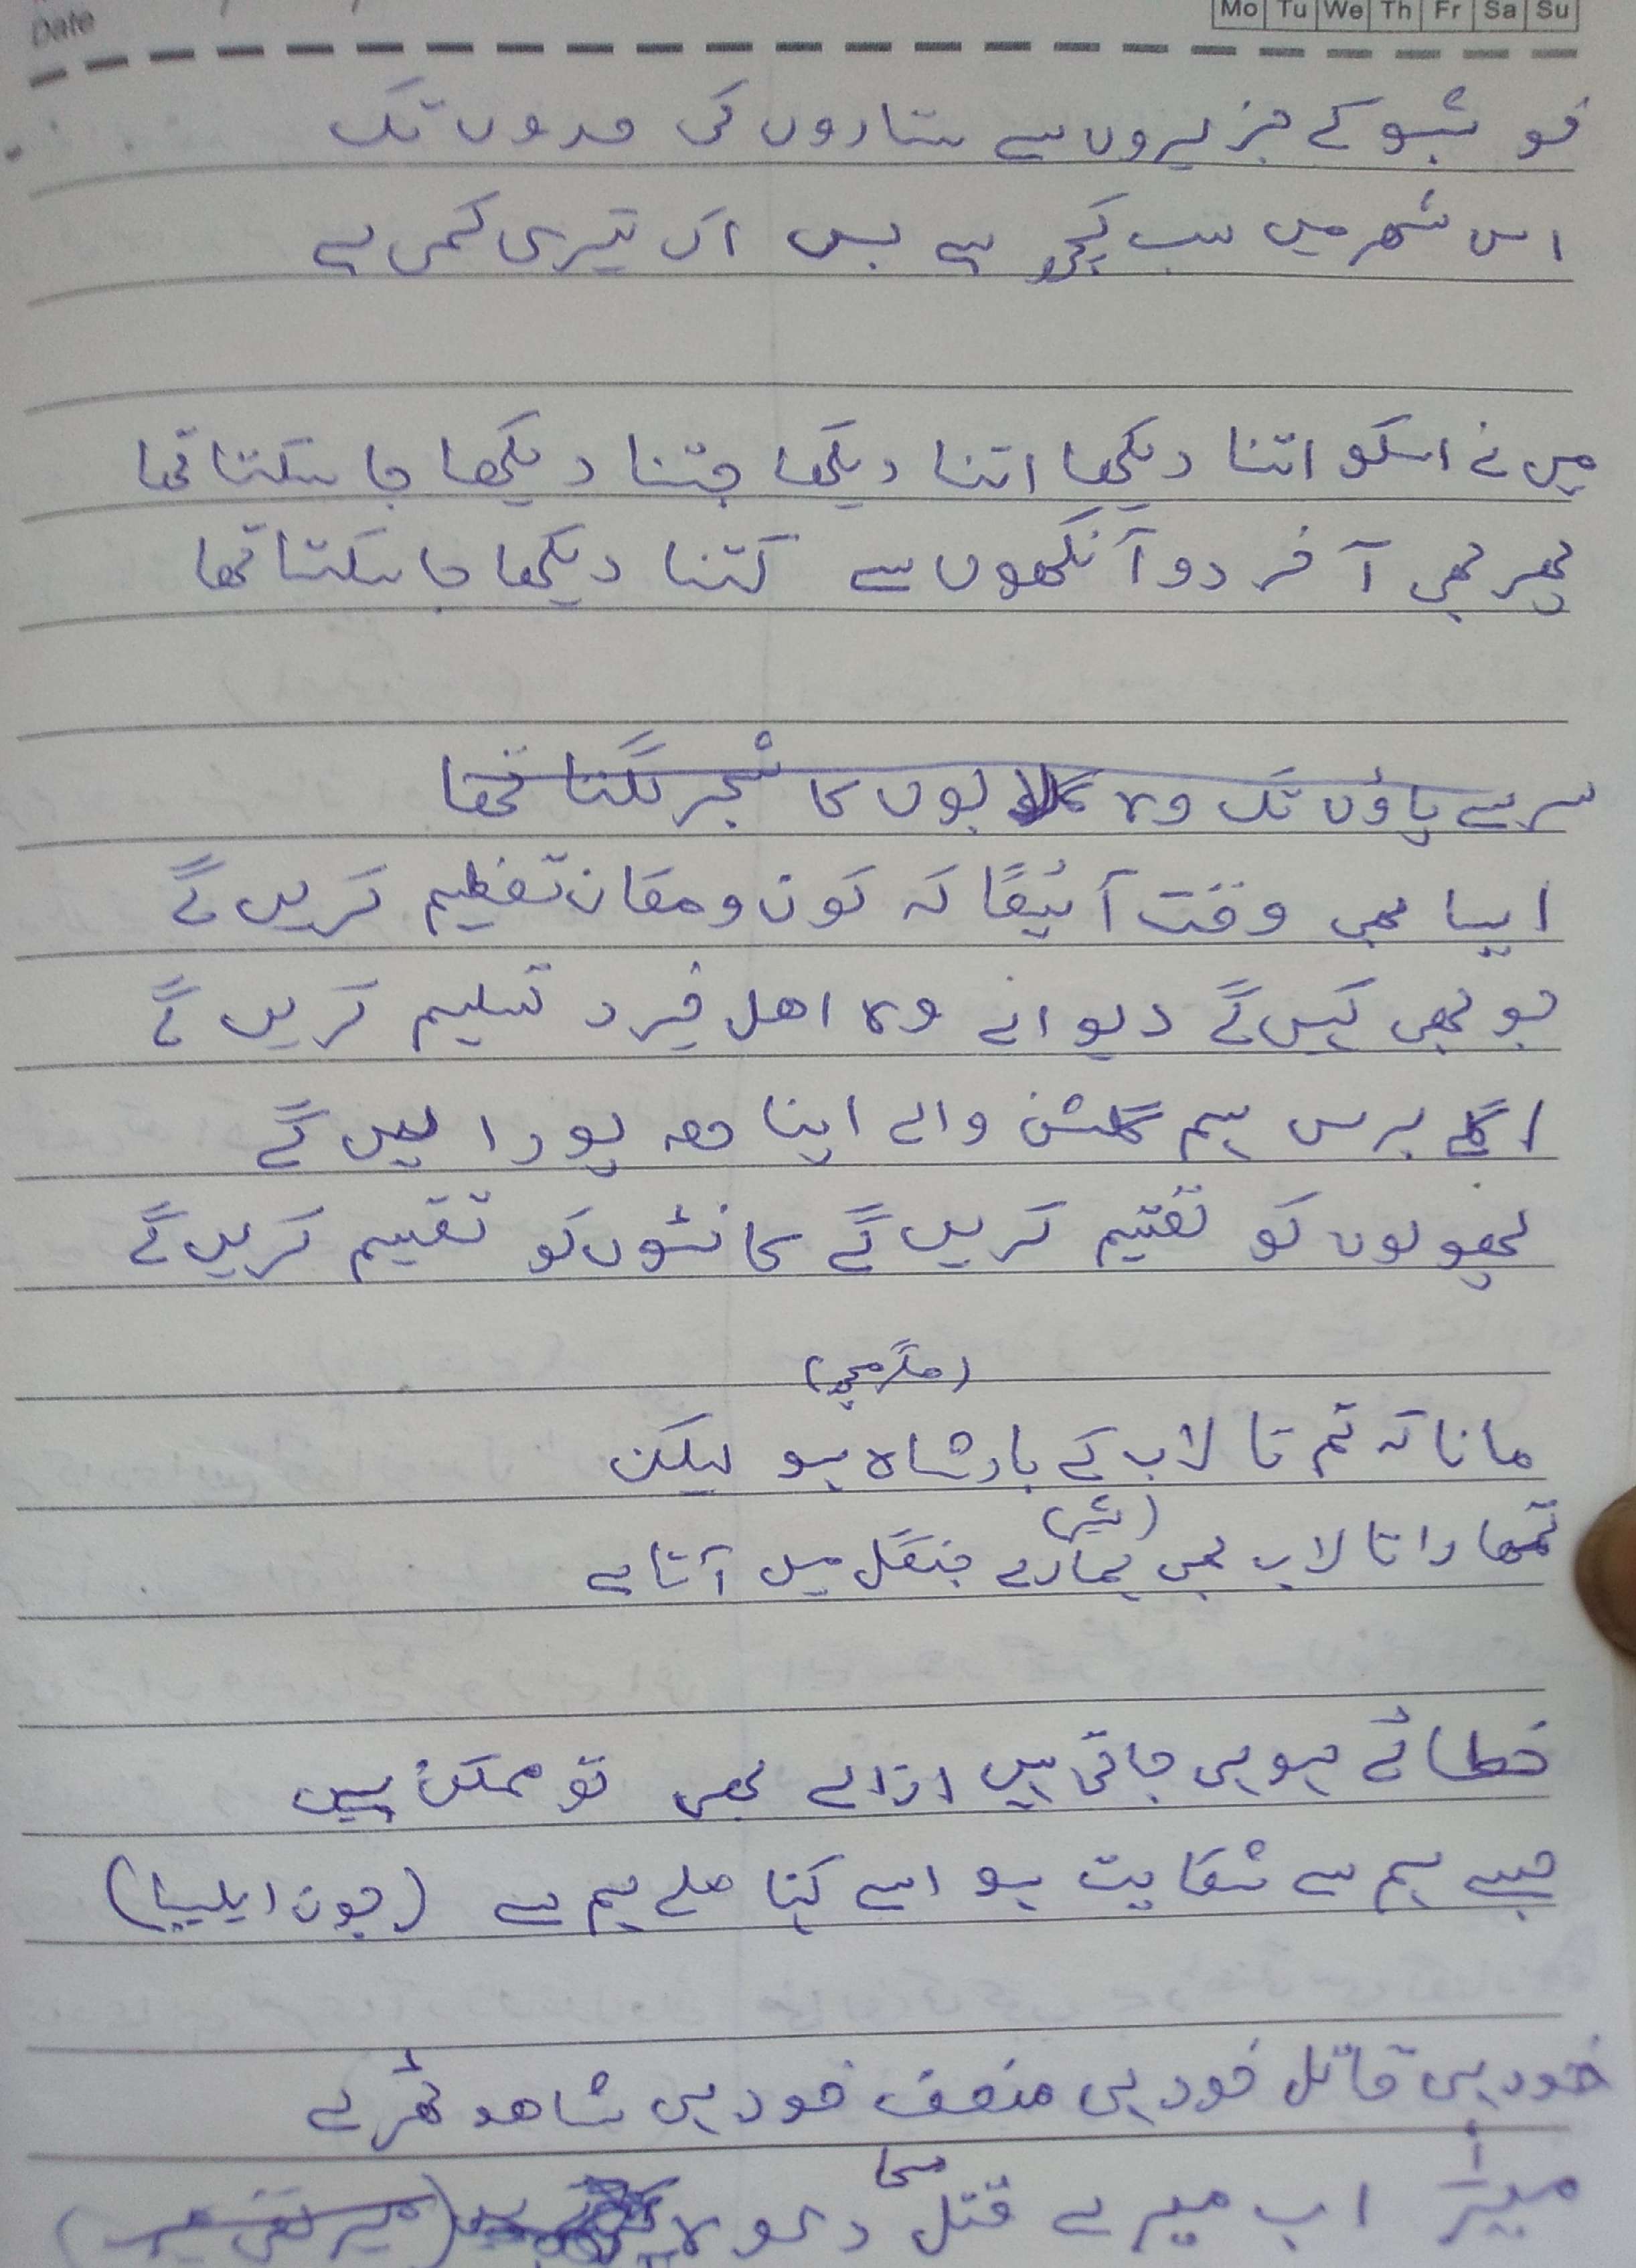 Date
Mo Tu We Th Fr Sa Su
خوشبو کے جزیروں سے ستاروں کی حدوں تک
اس شہر میں سب کچھ ہے بس اک تیری کمی ہے
میں نے اسکو اتنا دیکھا اتنا دیکھا جتنا دیکھا جا سکتا تھا
پھر بھی آخر دو آنکھوں سے کتنا دیکھا جا سکتا تھا
سر سے پاؤں تک وہ گلابوں کا شجر لگتا تھا
ایسا بھی وقت آئیگا کہ کون و مکان تعظیم کریں گے
جو بھی کہیں گے دیوانے وہ اھل خرد تسلیم کریں گے
اگلے برس ہم گلشن والے اپنا حصہ پورا لیں گے
پھولوں کو تقسیم کریں گے کانٹوں کو تقسیم کریں گے
(مگرمچھ)
مانا کہ تم تالاب کے بادشاہ ہو لیکن
(شیر)
تمھارا تالاب بھی ہمارے جنگل میں آتا ہے
خطائے ہو ہی جاتی ہیں ازالے بھی تو ممکن ہیں
جسے ہم سے شکایت ہو اسے کہنا ملے ہم سے (جون ایلیا)
خود ہی قاتل خود ہی منصف خود ہی شاھد ٹھرے
کا
میر اب میرے قتل دعوہ (میر تقی میر)